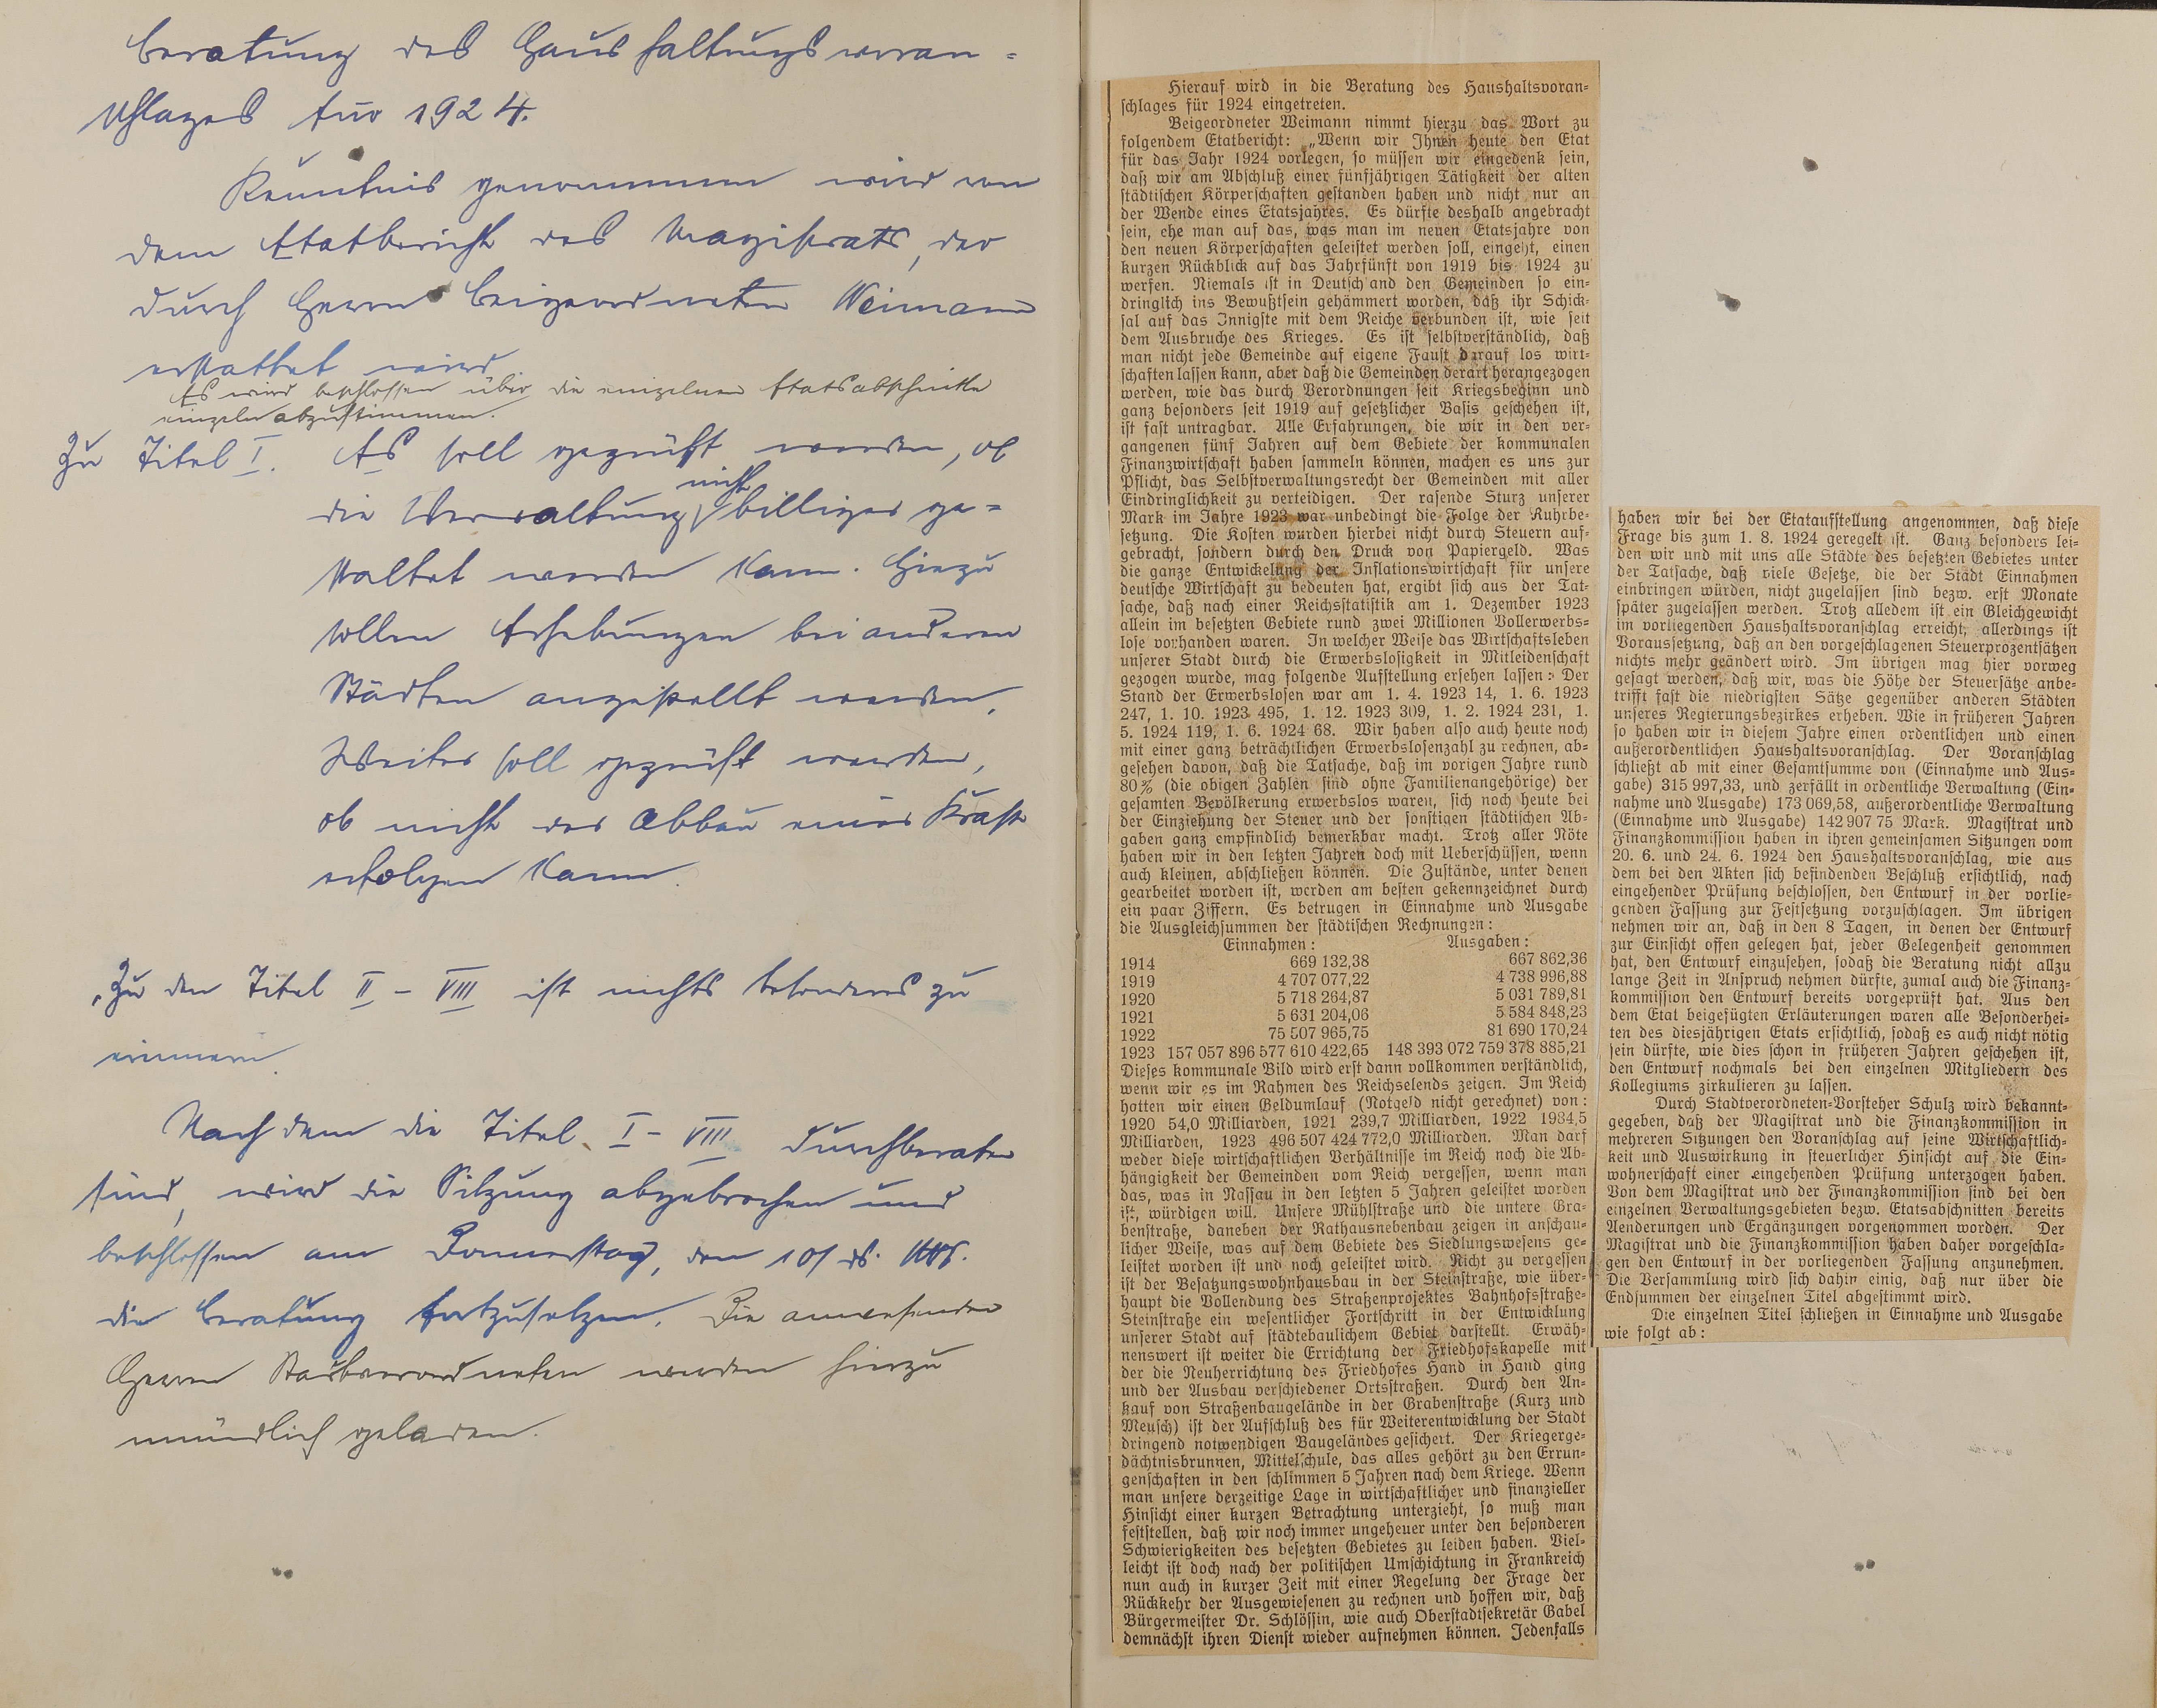 Beratung des Haushaltungsvoran-
schlages für 1924.
Kenntnis genommen wird von
dem Etatbericht des Magistrats, der
durch Herrn Beigeordneten Weimann
erstattet wird.
Es wird beschlossen über die einzelnen Etatsabschnitte
einzeln abzustimmen.
Zu Titel I. Es soll geprüft werden, ob
die Verwaltung nicht billiger ge-
staltet werden kann. Hiezu
sollen Erhebungen bei anderen
Städten angestellt werden.
Weiter soll geprüft werden,
ob nicht der Abbau einer Kraft
erfolgen kann.
Zu den Titel II - VIII ist nichts besonderes zu
erinnern.
Nachdem die Titel I - VIII durchberaten
sind, wird die Sitzung abgebrochen und
beschlossen am Donnerstag, den 10/ ds. Mts.
die Beratung fortzusetzen. Die anwesenden
Herren Stadtverordneten werden hierzu
mündlich geladen.
Hierauf wird in die Beratung des Haushaltsvoran-
schlages für 1924 eingetreten.
Beigeordneter Weimann nimmt hierzu das Wort zu
folgendem Etatbericht: „Wenn wir Ihnen heute den Etat
für das Jahr 1924 vorlegen, so müssen wir eingedenk sein,
daß wir am Abschluß einer fünfjährigen Tätigkeit der alten
städtischen Körperschaften gestanden haben und nicht nur an
der Wende eines Etatsjahres. Es dürfte deshalb angebracht
sein, ehe man auf das, was man im neuen Etatsjahre von
den neuen Körperschaften geleistet werden soll, eingeht, einen
kurzen Rückblick auf das Jahrfünft von 1919 bis 1924 zu
werfen. Niemals ist in Deutschland den Gemeinden so ein-
dringlich ins Bewußtsein gehämmert worden, daß ihr Schick-
sal auf das Innigste mit dem Reiche verbunden ist, wie seit
dem Ausbruche des Krieges. Es ist selbstverständlich, daß
man nicht jede Gemeinde auf eigene Faust darauf los wirt-
schaften lassen kann, aber daß die Gemeinden derart herangezogen
werden, wie das durch Verordnungen seit Kriegsbeginn und
ganz besonders seit 1919 auf gesetzlicher Basis geschehen ist,
ist fast untragbar. Alle Erfahrungen, die wir in den ver-
gangenen fünf Jahren auf dem Gebiete der kommunalen
Finanzwirtschaft haben sammeln können, machen es uns zur
Pflicht, das Selbstverwaltungsrecht der Gemeinden mit aller
Eindringlichkeit zu verteidigen. Der rasende Sturz unserer
Mark im Jahre 1923 war unbedingt die Folge der Ruhrbe-
setzung. Die Kosten wurden hierbei nicht durch Steuern auf-
gebracht, sondern durch den Druck von Papiergeld. Was
die ganze Entwickelung der Inflationswirtschaft für unsere
deutsche Wirtschaft zu bedeuten hat, ergibt sich aus der Tat-
sache, daß nach einer Reichsstatistik am 1. Dezember 1923
allein im besetzten Gebiete rund zwei Millionen Vollerwerbs-
lose vorhanden waren. In welcher Weise das Wirtschaftsleben
unserer Stadt durch die Erwerbslosigkeit in Mitleidenschaft
gezogen wurde, mag folgende Aufstellung ersehen lassen: Der
Stand der Erwerbslosen war am 1. 4. 1923 14, 1. 6. 1923
247, 1. 10. 1923 495, 1. 12. 1923 309, 1. 2. 1924 231, 1.
5. 1924 119, 1. 6. 1924 68. Wir haben also auch heute noch
mit einer ganz beträchtlichen Erwerbslosenzahl zu rechnen, ab-
gesehen davon, daß die Tatsache, daß im vorigen Jahre rund
80% (die obigen Zahlen sind ohne Familienangehörige) der
gesamten Bevölkerung erwerbslos waren, sich noch heute bei
der Einziehung der Steuer und der sonstigen städtischen Ab-
gaben ganz empfindlich bemerkbar macht. Trotz aller Nöte
haben wir in den letzten Jahren doch mit Ueberschüssen, wenn
auch kleinen, abschließen können. Die Zustände, unter denen
gearbeitet worden ist, werden am besten gekennzeichnet durch
ein paar Ziffern. Es betrugen in Einnahme und Ausgabe
die Ausgleichsummen der städtischen Rechnungen:
Einnahmen: Ausgaben:
1914 669 132,38 667 862,36
1919 4 707 077,22 4 738 996,88
1920 5 718 264,87 5 031 789,81
1921 5 631 204,06 5 584 848,23
1922 75 507 965,75 81 690 170,24
1923 157 057 896 577 610 422,65 148 393 072 759 378 885,21
Dieses kommunale Bild wird erst dann vollkommen verständlich,
wenn wir es im Rahmen des Reichselends zeigen. Im Reich
hatten wir einen Geldumlauf (Notgeld nicht gerechnet) von:
1920 54,0 Milliarden, 1921 239,7 Milliarden, 1922 1984,5
Milliarden, 1923 496 507 424 772,0 Milliarden. Man darf
weder diese wirtschaftlichen Verhältnisse im Reich noch die Ab-
hängigkeit der Gemeinden vom Reich vergessen, wenn man
das, was in Nassau in den letzten 5 Jahren geleistet worden
ist, würdigen will. Unsere Mühlstraße und die untere Gra-
benstraße, daneben der Rathausnebenbau zeigen in anschau-
licher Weise, was auf dem Gebiete des Siedlungswesens ge-
leistet worden ist und noch geleistet wird. Nicht zu vergessen
ist der Besatzungswohnhausbau in der Steinstraße, wie über-
haupt die Vollendung des Straßenprojektes Bahnhofsstraße-
Steinstraße ein wesentlicher Fortschritt in der Entwicklung
unserer Stadt auf städtebaulichem Gebiet darstellt. Erwäh-
nenswert ist weiter die Errichtung der Friedhofskapelle mit
der die Neuherrichtung des Friedhofes Hand in Hand ging
und der Ausbau verschiedener Ortsstraßen. Durch den An-
kauf von Straßenbaugelände in der Grabenstraße (Kurz und
Meusch) ist der Aufschluß des für Weiterentwicklung der Stadt
dringend notwendigen Baugeländes gesichert. Der Kriegerge-
dächtnisbrunnen, Mittelschule, das alles gehört zu den Errun-
genschaften in den schlimmen 5 Jahren nach dem Kriege. Wenn
man unsere derzeitige Lage in wirtschaftlicher und finanzieller
Hinsicht einer kurzen Betrachtung unterzieht, so muß man
feststellen, daß wir noch immer ungeheuer unter den besonderen
Schwierigkeiten des besetzten Gebietes zu leiden haben. Viel-
leicht ist doch nach der politischen Umschichtung in Frankreich
nun auch in kurzer Zeit mit einer Regelung der Frage der
Rückkehr der Ausgewiesenen zu rechnen und hoffen wir, daß
Bürgermeister Dr. Schlössin, wie auch Oberstadtsekretär Gabel
demnächst ihren Dienst wieder aufnehmen können. Jedenfalls
haben wir bei der Etataufstellung angenommen, daß diese
Frage bis zum 1. 8. 1924 geregelt ist. Ganz besonders lei-
den wir und mit uns alle Städte des besetzten Gebietes unter
der Tatsache, daß viele Gesetze, die der Stadt Einnahmen
einbringen würden, nicht zugelassen sind bezw. erst Monate
später zugelassen werden. Trotz alledem ist ein Gleichgewicht
im vorliegenden Haushaltsvoranschlag erreicht, allerdings ist
Voraussetzung, daß an den vorgeschlagenen Steuerprozentsätzen
nichts mehr geändert wird. Im übrigen mag hier vorweg
gesagt werden, daß wir, was die Höhe der Steuersätze anbe-
trifft fast die niedrigsten Sätze gegenüber anderen Städten
unseres Regierungsbezirkes erheben. Wie in früheren Jahren
so haben wir in diesem Jahre einen ordentlichen und einen
außerordentlichen Haushaltsvoranschlag. Der Voranschlag
schließt ab mit einer Gesamtsumme von (Einnahme und Aus-
gabe) 315 997,33, und zerfällt in ordentliche Verwaltung (Ein-
nahme und Ausgabe) 173 069,58, außerordentliche Verwaltung
(Einnahme und Ausgabe) 142 907 75 Mark. Magistrat und
Finanzkommission haben in ihren gemeinsamen Sitzungen vom
20. 6. und 24. 6. 1924 den Haushaltsvoranschlag, wie aus
dem bei den Akten sich befindenden Beschluß ersichtlich, nach
eingehender Prüfung beschlossen, den Entwurf in der vorlie-
genden Fassung zur Festsetzung vorzuschlagen. Im übrigen
nehmen wir an, daß in den 8 Tagen, in denen der Entwurf
zur Einsicht offen gelegen hat, jeder Gelegenheit genommen
hat, den Entwurf einzusehen, sodaß die Beratung nicht allzu
lange Zeit in Anspruch nehmen dürfte, zumal auch die Finanz-
kommission den Entwurf bereits vorgeprüft hat. Aus den
dem Etat beigefügten Erläuterungen waren alle Besonderhei-
ten des diesjährigen Etats ersichtlich, sodaß es auch nicht nötig
sein dürfte, wie dies schon in früheren Jahren geschehen ist,
den Entwurf nochmals bei den einzelnen Mitgliedern des
Kollegiums zirkulieren zu lassen.
Durch Stadtverordneten-Vorsteher Schulz wird bekannt-
gegeben, daß der Magistrat und die Finanzkommission in
mehreren Sitzungen den Voranschlag auf seine Wirtschaftlich-
keit und Auswirkung in steuerlicher Hinsicht auf die Ein-
wohnerschaft einer eingehenden Prüfung unterzogen haben.
Von dem Magistrat und der Finanzkommission sind bei den
einzelnen Verwaltungsgebieten bezw. Etatsabschnitten bereits
Aenderungen und Ergänzungen vorgenommen worden. Der
Magistrat und die Finanzkommission haben daher vorgeschla-
gen den Entwurf in der vorliegenden Fassung anzunehmen.
Die Versammlung wird sich dahin einig, daß nur über die
Endsummen der einzelnen Titel abgestimmt wird.
Die einzelnen Titel schließen in Einnahme und Ausgabe
wie folgt ab: